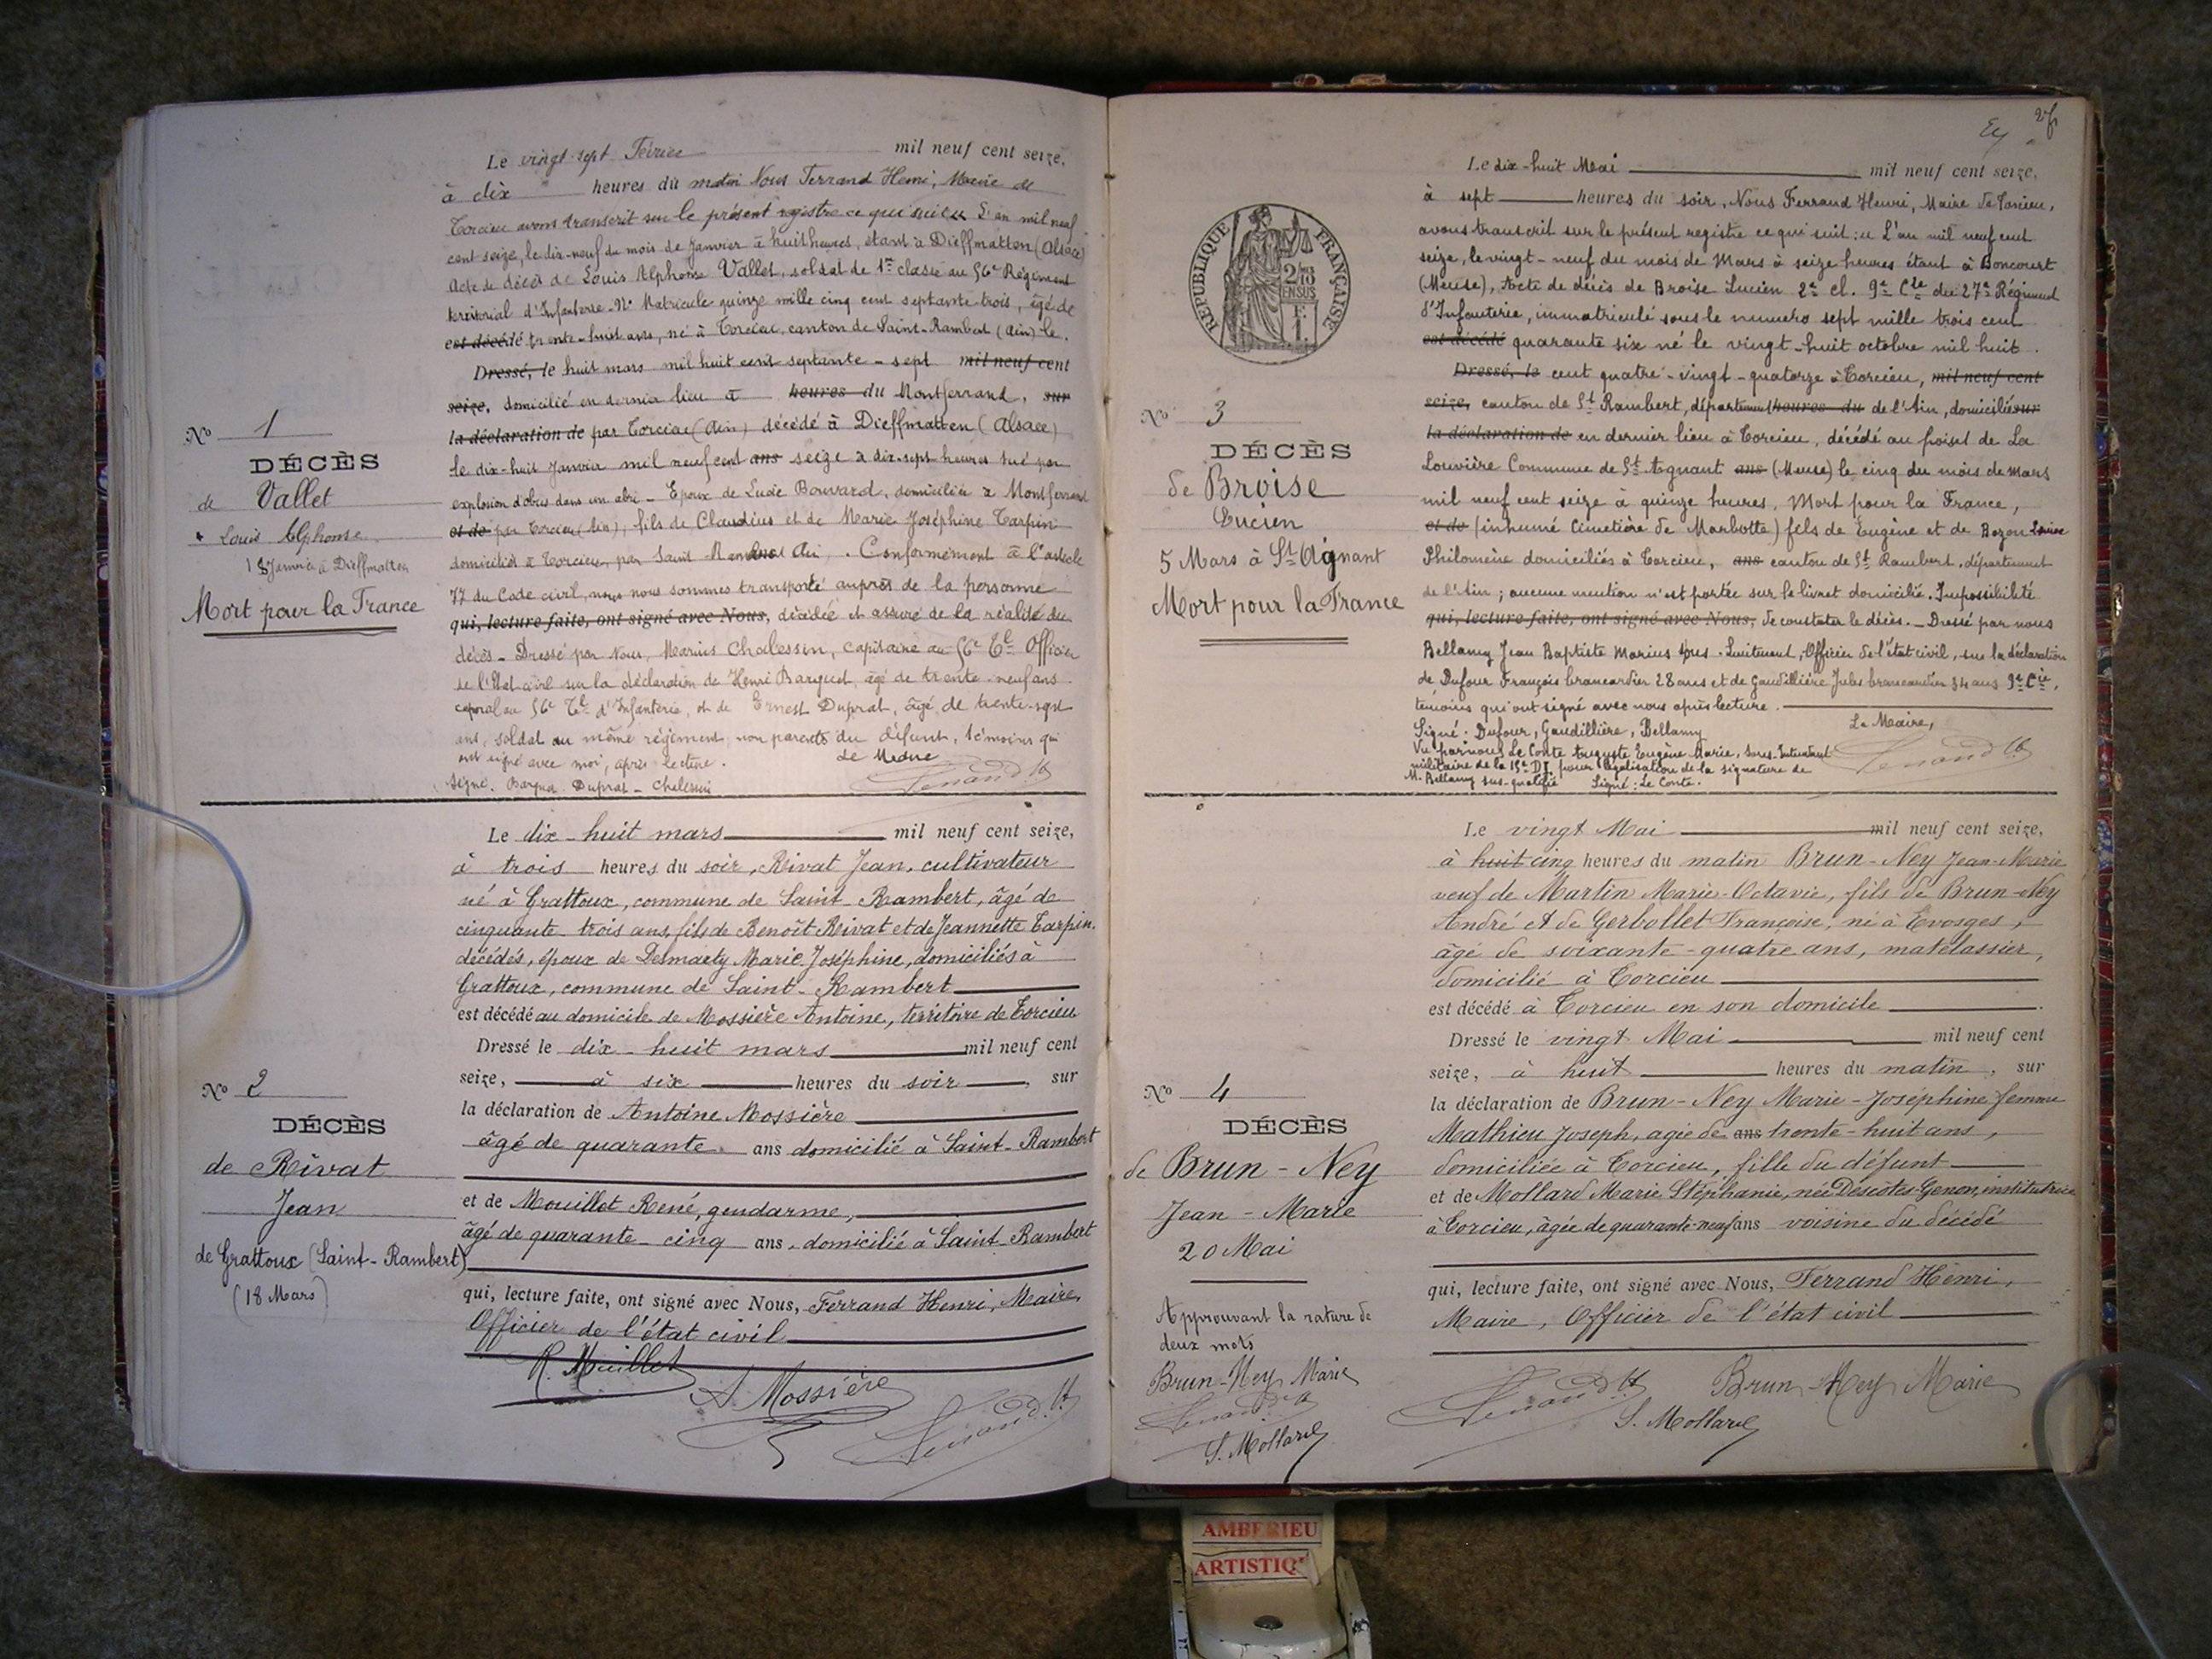 Le vingt sept Février mil neuf cent seize,
à dix heures du matin Nous Ferrand Henri, Maire de
Torcieu avons transcrit sur le présent registre ce qui suit « L'an mil neuf
cent seize, le dix-neuf du mois de Janvier à huit heures, étant à Dieffmatten (Alsace)
Acte de décès de Louis Alphonse Vallet, soldat de 1re classe au 56e Régiment
territorial d'Infanterie - No Matricule quinze mille cinq cent septante-trois, âgé de
est décédé trente-huit ans, né à Torcieu, canton de Saint-Rambert (Ain) le
Dressé, le huit mars mil huit cent septante-sept mil neuf cent
seize, domicilié en dernier lieu à heures du Montferrand, sur
la déclaration de par Torcieu (Ain) décédé à Dieffmatten (Alsace)
le dix-huit Janvier mil neuf cent ans seize à dix-sept heures tué par
explosion d'obus dans un abri - Epoux de Lucie Bouvard, domiciliée à Montferrand
et de par Torcieu (Ain), fils de Claudius et de Marie Joséphine Tarpin
domiciliés à Torcieu, par Saint-Rambert Ain. Conformément à l'article
77 du Code civil, nous nous sommes transporté auprès de la personne
qui, lecture faite, ont signé avec Nous, décédée et assuré de la réalité du
décès - Dressé par Nous, Marius Chalessin, capitaine au 56e Tl Officier
de l'Etat civil sur la déclaration de Henri Barquet, âgé de trente-neuf ans
caporal au 56e Tl d'Infanterie, et de Ernest Duprat, âgé de trente-sept
ans, soldat au même régiment, non parents du défunt, témoins qui
ont signé avec moi, après lecture. Le Maire
Signé. Duprat - Chalessin Ferrand H
No 1
DÉCÈS
de Vallet
Louis Alphonse
18 Janvier à Dieffmatten
Mort pour la France
Le dix-huit mars mil neuf cent seize,
à trois heures du soir, Rivat Jean, cultivateur
né à Grattoux, commune de Saint-Rambert, âgé de
cinquante-trois ans, fils de Benoît Rivat et de Jeannette Tarpin
décédés, époux de Desmaety Marie-Joséphine, domiciliés à
Grattoux, commune de Saint-Rambert
est décédé au domicile de Mossière Antoine, territoire de Torcieu
Dressé le dix-huit mars mil neuf cent
seize, à six heures du soir, sur
la déclaration de Antoine Mossière
âgé de quarante ans domicilié à Saint-Rambert
et de Mouillet René, gendarme,
âgé de quarante-cinq ans, domicilié à Saint-Rambert
qui, lecture faite, ont signé avec Nous, Ferrand Henri, Maire,
Officier de l'état civil
R. Mouillet
A. Mossière Ferrand H
No 2
DÉCÈS
de Rivat
Jean
de Grattoux (Saint-Rambert)
(18 Mars)
Le dix-huit Mai mil neuf cent seize,
à sept heures du soir, Nous Ferrand Henri, Maire de Torcieu,
avons transcrit sur le présent registre ce qui suit : « L'an mil neuf cent
seize, le vingt-neuf du mois de Mars à seize heures étant à Boncourt
(Meuse), Acte de décès de Broise Lucien 2e cl. 9e Cie du 27e Régiment
d'Infanterie, immatriculé sous le numéro sept mille trois cent
est décédé quarante six né le vingt-huit octobre mil huit
Dressé, le cent quatre-vingt-quatorze à Torcieu, mil neuf cent
seize, canton de St Rambert, département heures du de l'Ain, domicilié sur
la déclaration de en dernier lieu à Torcieu, décédé au foiset de La
Louvière Commune de St Agnant ans (Meuse) le cinq du mois de mars
mil neuf cent seize à quinze heures. Mort pour la France,
et de (inhumé Cimetière de Marbotte) fils de Eugène et de Bozon Louise
Philomène domiciliés à Torcieu, ans canton de St Rambert, département
de l'Ain ; aucune mention n'est portée sur le livret domicilié. Impossibilité
qui, lecture faite, ont signé avec Nous, de constater le décès. - Dressé par nous
Bellamy Jean Baptiste Marius sous-lieutenant, Officier de l'état civil, sur la déclaration
de Dufour François brancardier 28 ans et de Gaudillière Jules brancardier 34 ans 9e Cie,
témoins qui ont signé avec nous après lecture.
Signé : Dufour, Gaudillière, Bellamy Le Maire,
Vu par nous Le Conte Auguste Eugène Marie, Sous-Intendant
militaire de la 15e DI pour légalisation de la signature de Ferrand H
M. Bellamy sus-qualifié Signé : Le Conte.
REPUBLIQUE FRANÇAISE
No 3
DÉCÈS
de Broise
Lucien
5 Mars à St Aignant
Mort pour la France
Le vingt Mai mil neuf cent seize,
à huit cinq heures du matin Brun-Ney Jean-Marie
veuf de Martin Marie-Octavie, fils de Brun-Ney
André et de Gerbollet Françoise, né à Evosges,
âgé de soixante-quatre ans, matelassier,
domicilié à Torcieu
est décédé à Torcieu en son domicile
Dressé le vingt Mai mil neuf cent
seize, à huit heures du matin, sur
la déclaration de Brun-Ney Marie-Joséphine femme
Mathieu Joseph, agée de ans trente-huit ans,
domiciliée à Torcieu, fille du défunt
et de Mollard Marie Stéphanie, née Descôtes-Genon, institutrice
à Torcieu, âgée de quarante-neuf ans voisine du décédé
qui, lecture faite, ont signé avec Nous, Ferrand Henri,
Maire, Officier de l'état civil
Ferrand H Brun-Ney Marie
S. Mollard
No 4
DÉCÈS
de Brun-Ney
Jean-Marie
20 Mai
Approuvant la rature de
deux mots
Brun-Ney Marie
Ferrand H
S. Mollard
AMBERIEU
ARTISTIQ